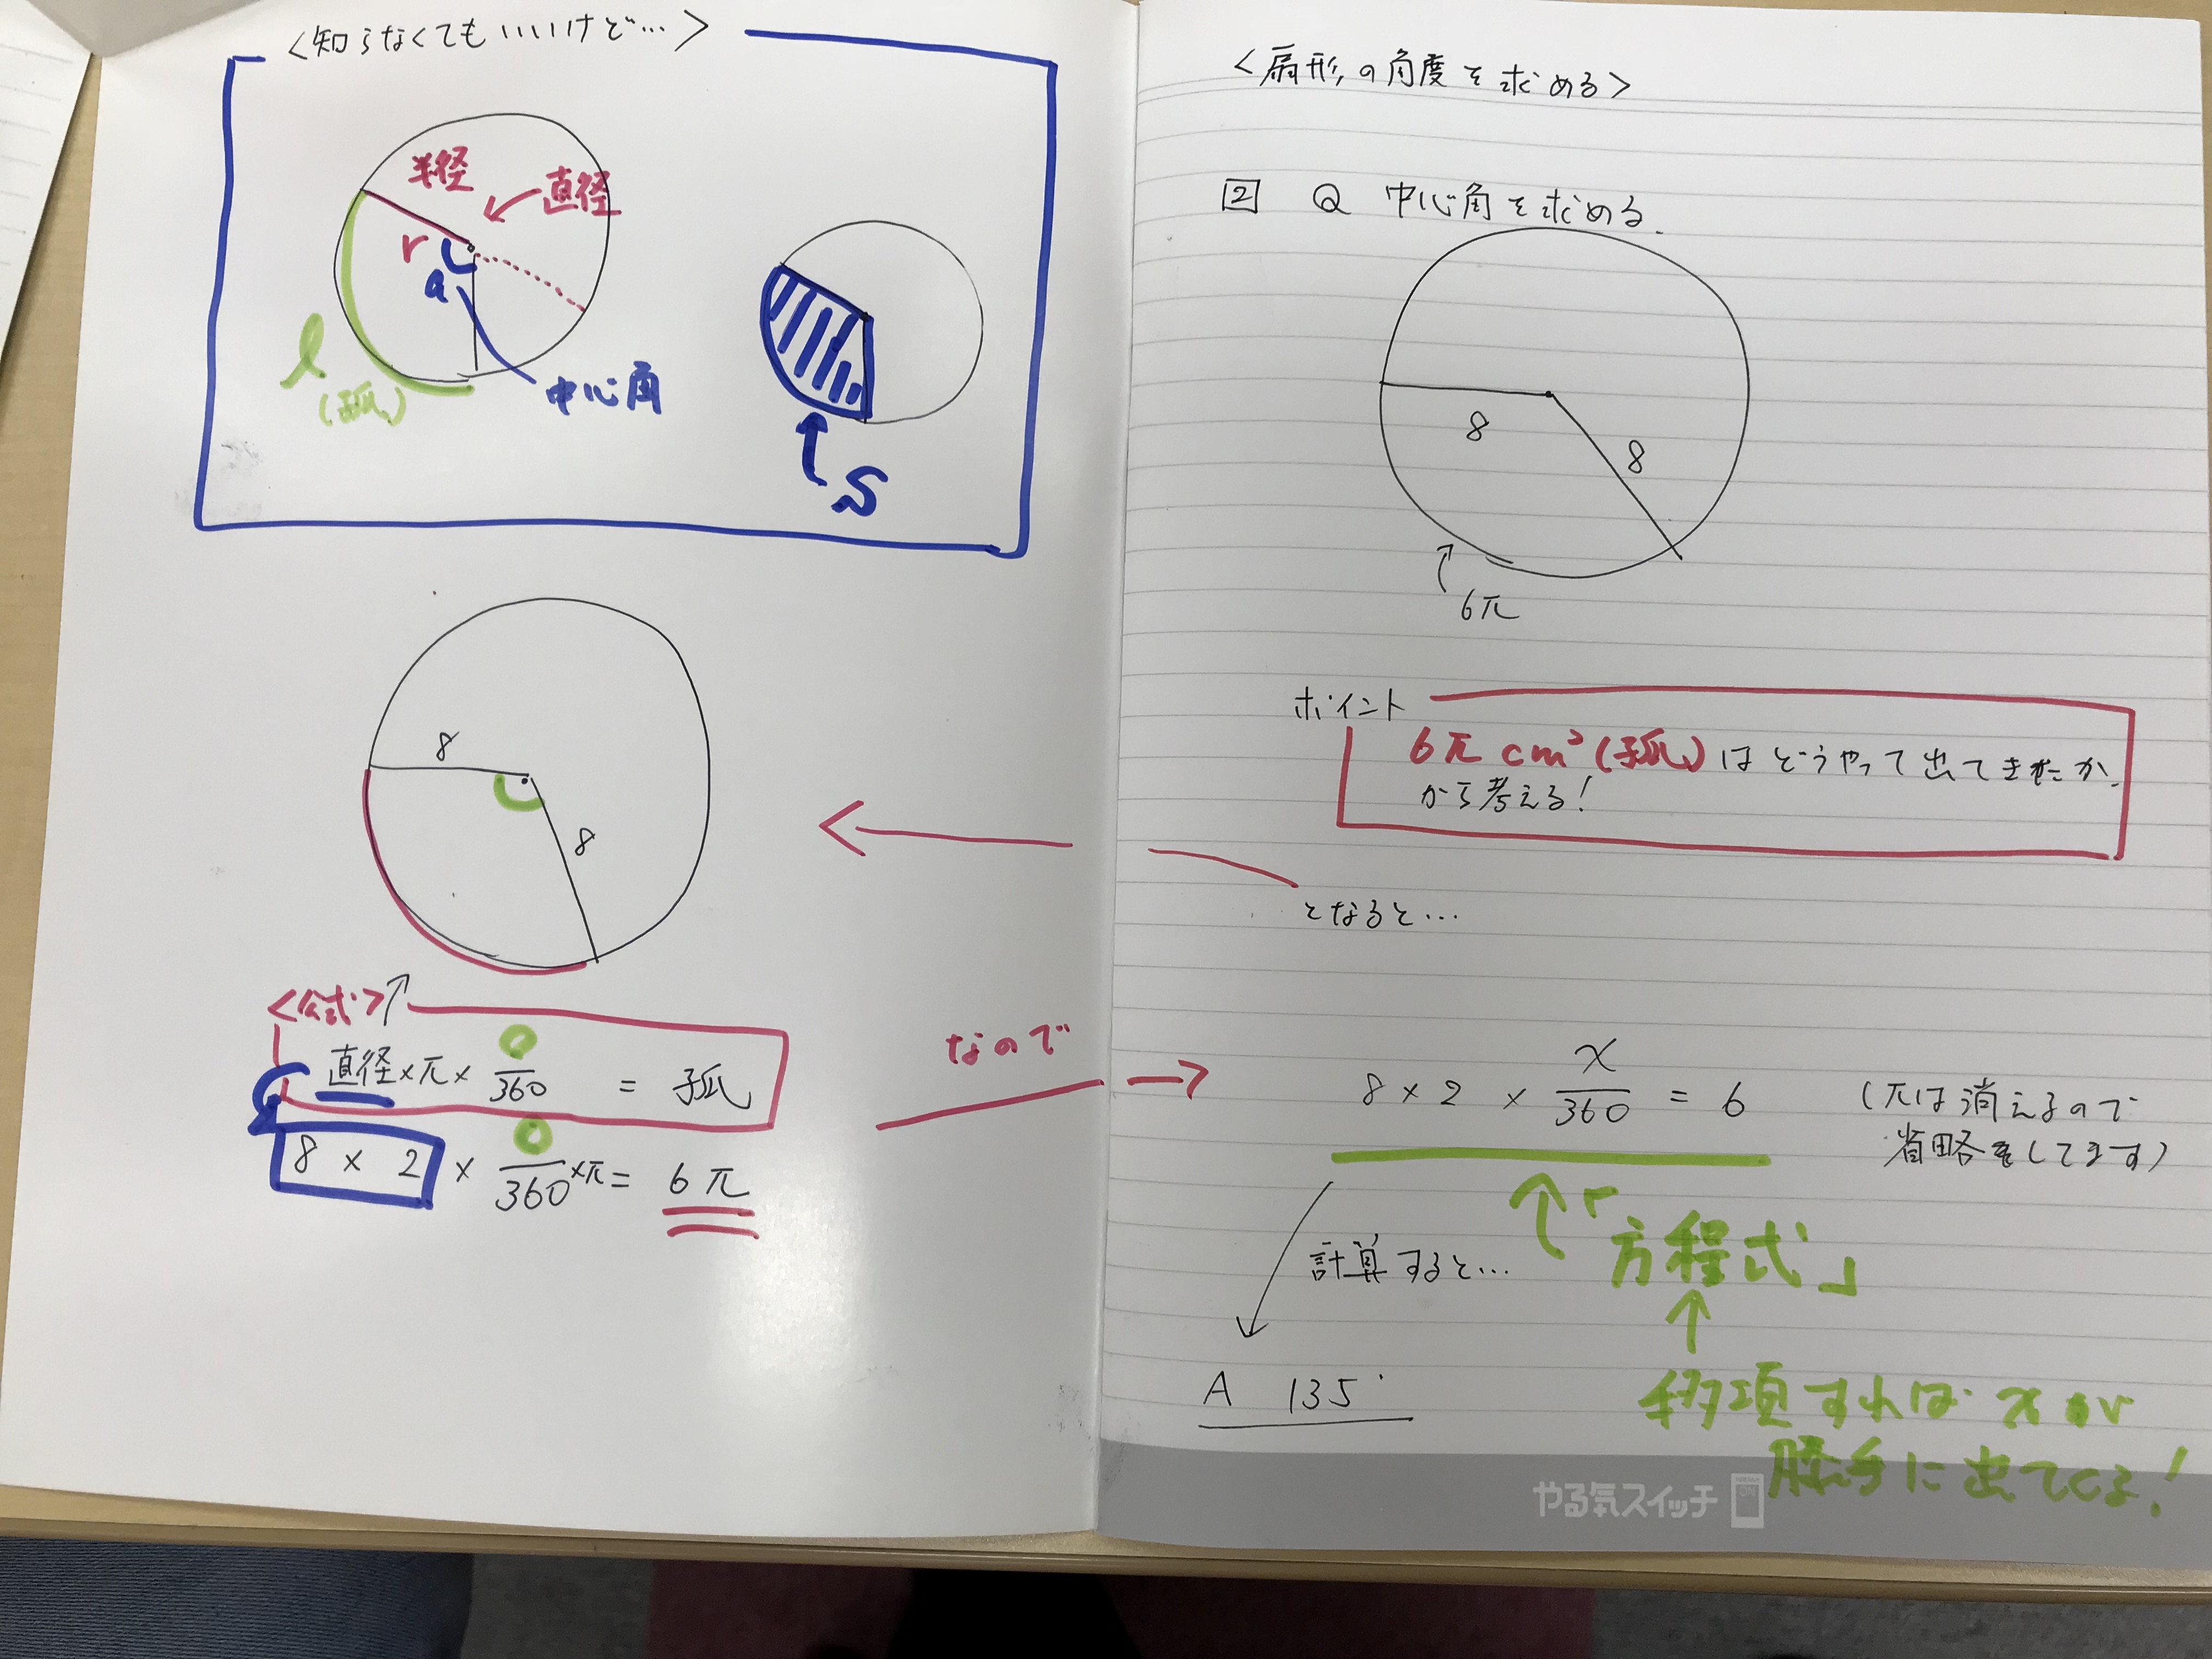 <知らなくてもいいけど…>
半径
直径
r
a
l
(孤)
中心角
S
8
8
<公式>
直径×π×○/360 = 孤
8 × 2 × ○/360 ×π = 6π
なので
<扇形の角度を求める>
2 Q 中心角を求める.
8
8
6π
ポイント
6π cm² (孤)はどうやって出てきたか
から考える!
となると…
8 × 2 × x/360 = 6
(πは消えるので
省略をしてます)
「方程式」
計算すると…
移項すれば xが
勝手に出てくる!
A 135°
やる気スイッチ